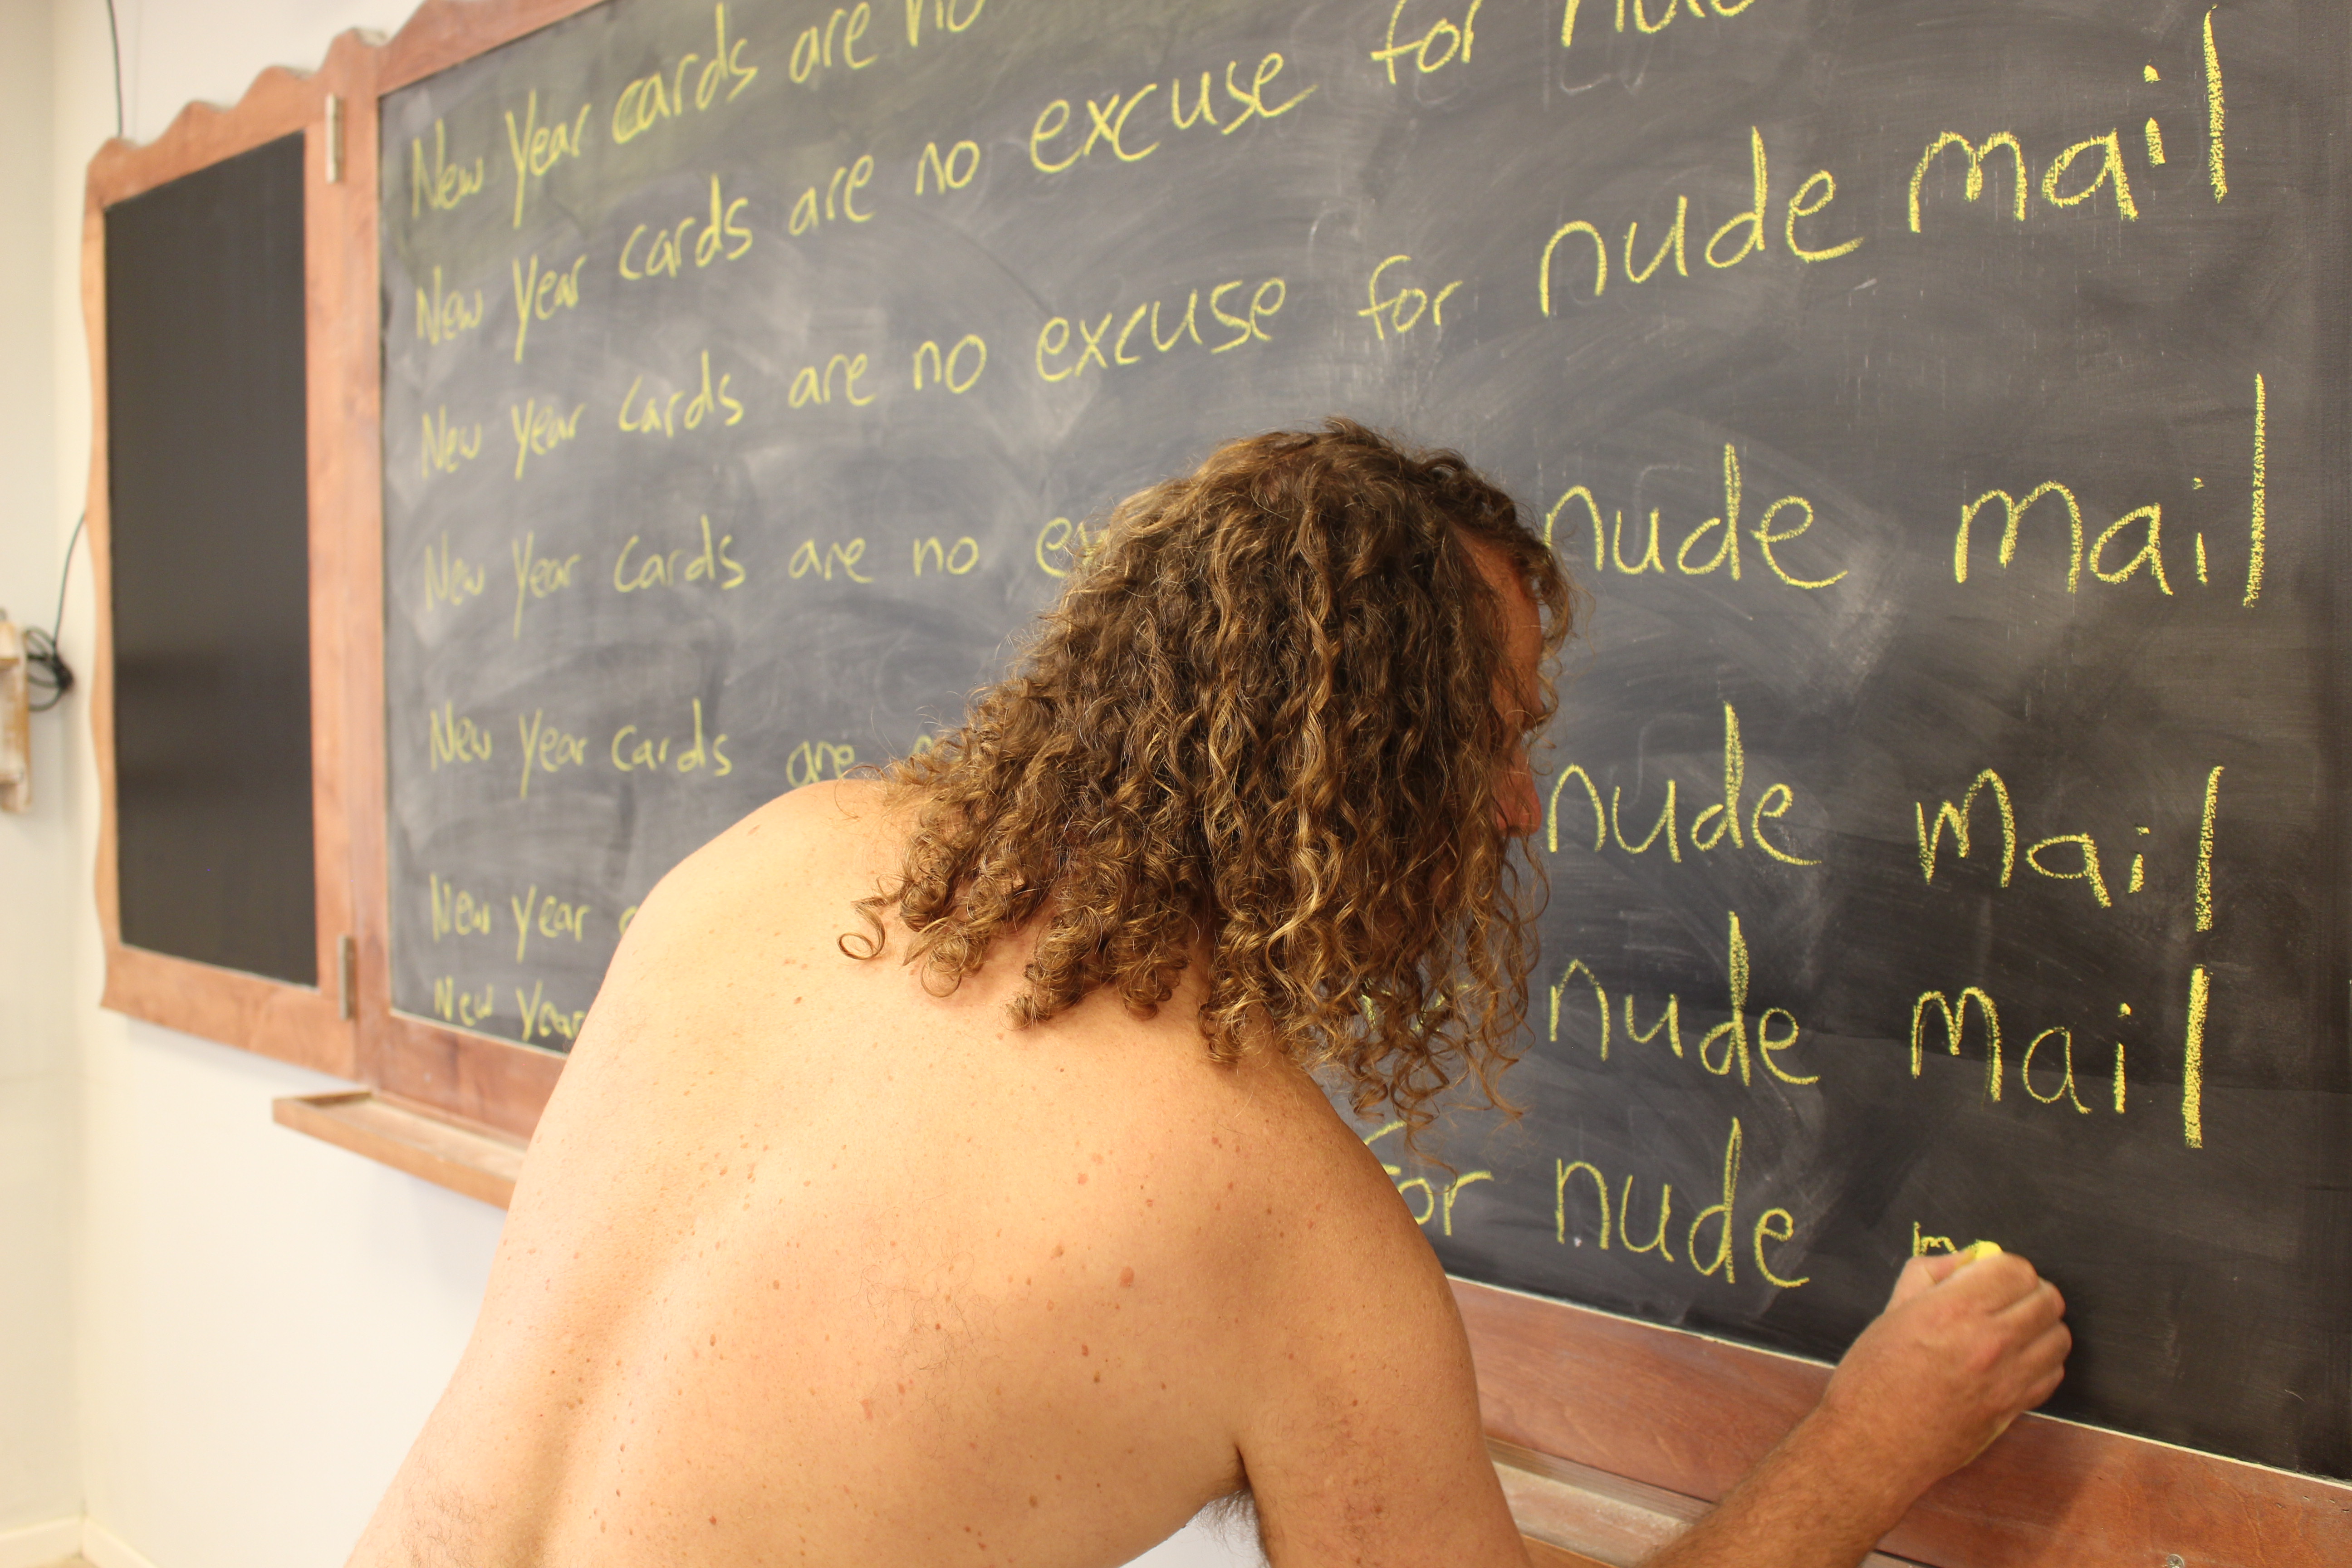 New Year cards are no
New Year cards are no excuse for nude
New Year cards are no excuse for nude mail
New Year cards are no nude mail
New Year cards are nude mail
New Year nude mail
New Year for nude